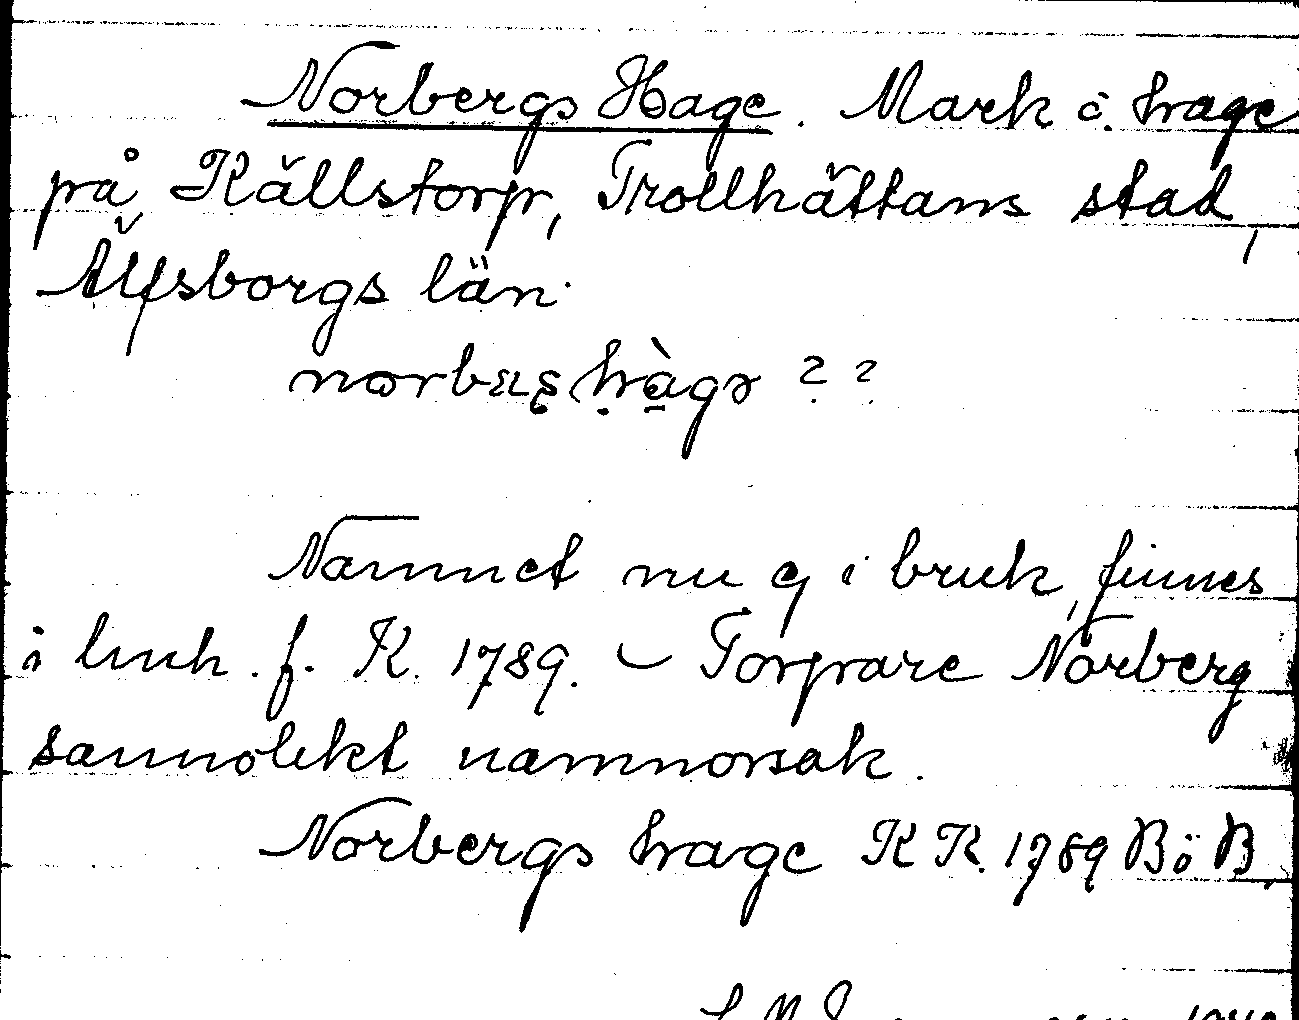 Norbergs Hage. Mark ö. hage
på Källstorp, Trollhättans stad,
Älfsborgs län.
? ?
Namnet nu ej i bruk, finnes
i f. K. 1789. – Torpare Norberg
sannolikt namnorsak.
Norbergs hage KR. 1789 BöB